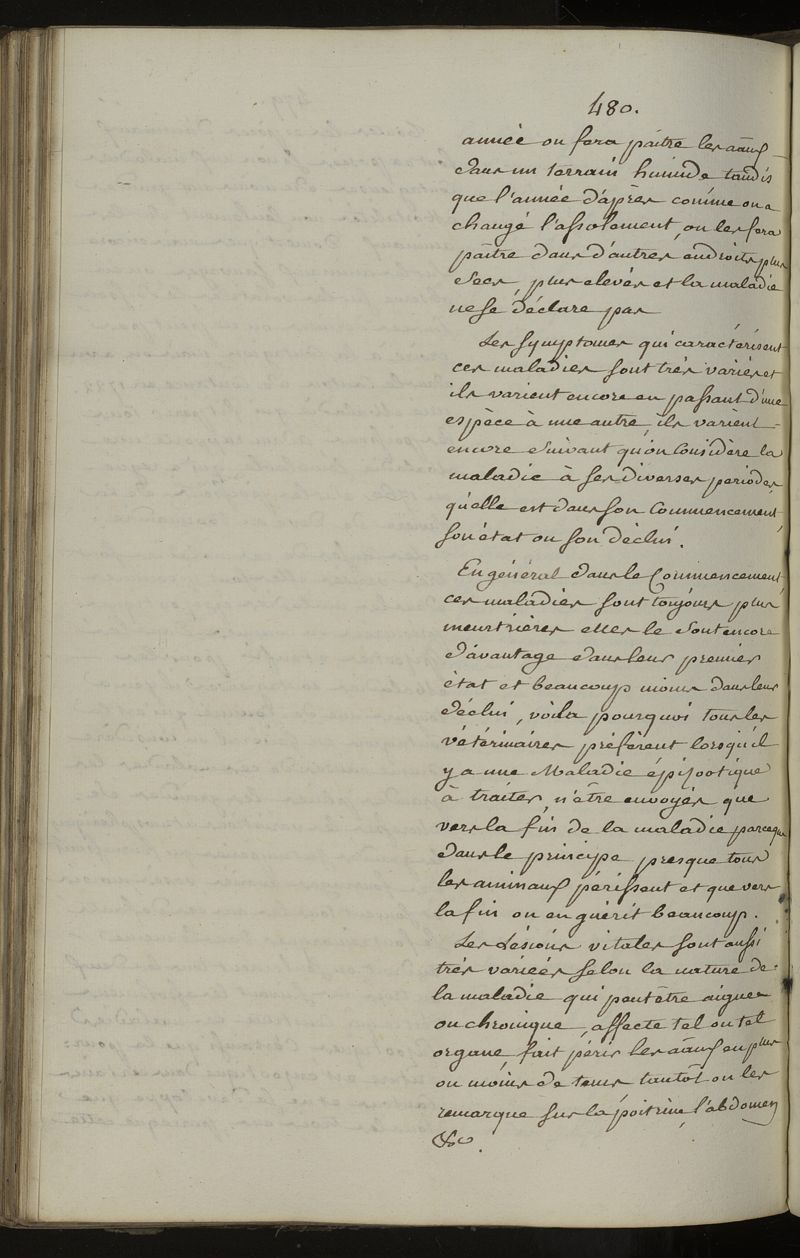 480.
année on fera paître les aãux
dans un terrain humide tandis
que l'année d'après comme on a
changé l'assolement, on les fera
paître dans d'autres endroits plus
secs, plus elevés et la maladie
ne se déclare pas
Les symptomes qui caractérisent
ces maladies sont très variés et
ils varient encore en passant d'une
espèce à une autre, ils varient
encore suivant qu'on Considère la
maladie à ses diverses periodes,
qu'elle est dans son Commencement,
son état ou son déclin.
En général dans le Commencement
ces maladies sont toujours plus
meurtrières elles le sont encore
d'avantage dans leur premier
état et beaucoup moins dans leur
déclin, voila pourquoi tous les
vétérinaires préfèrent lorsqu'il
y a une Maladie épizootique
à traiter, n'être envoyés que
vers la fin de la maladie parceque
dans le principe presque tous
les animaux périssent et que vers
la fin on en guérit beaucoup.
Les Lésions vitales sont aussi
très variées selon la nature de
la maladie qui peut être aigue
ou chronique, affecte tel ou tel
organe, fait périr les aãux en plus
ou moins de tems tantôt on les
remarque sur la poitrine, l'abdomen
&c.